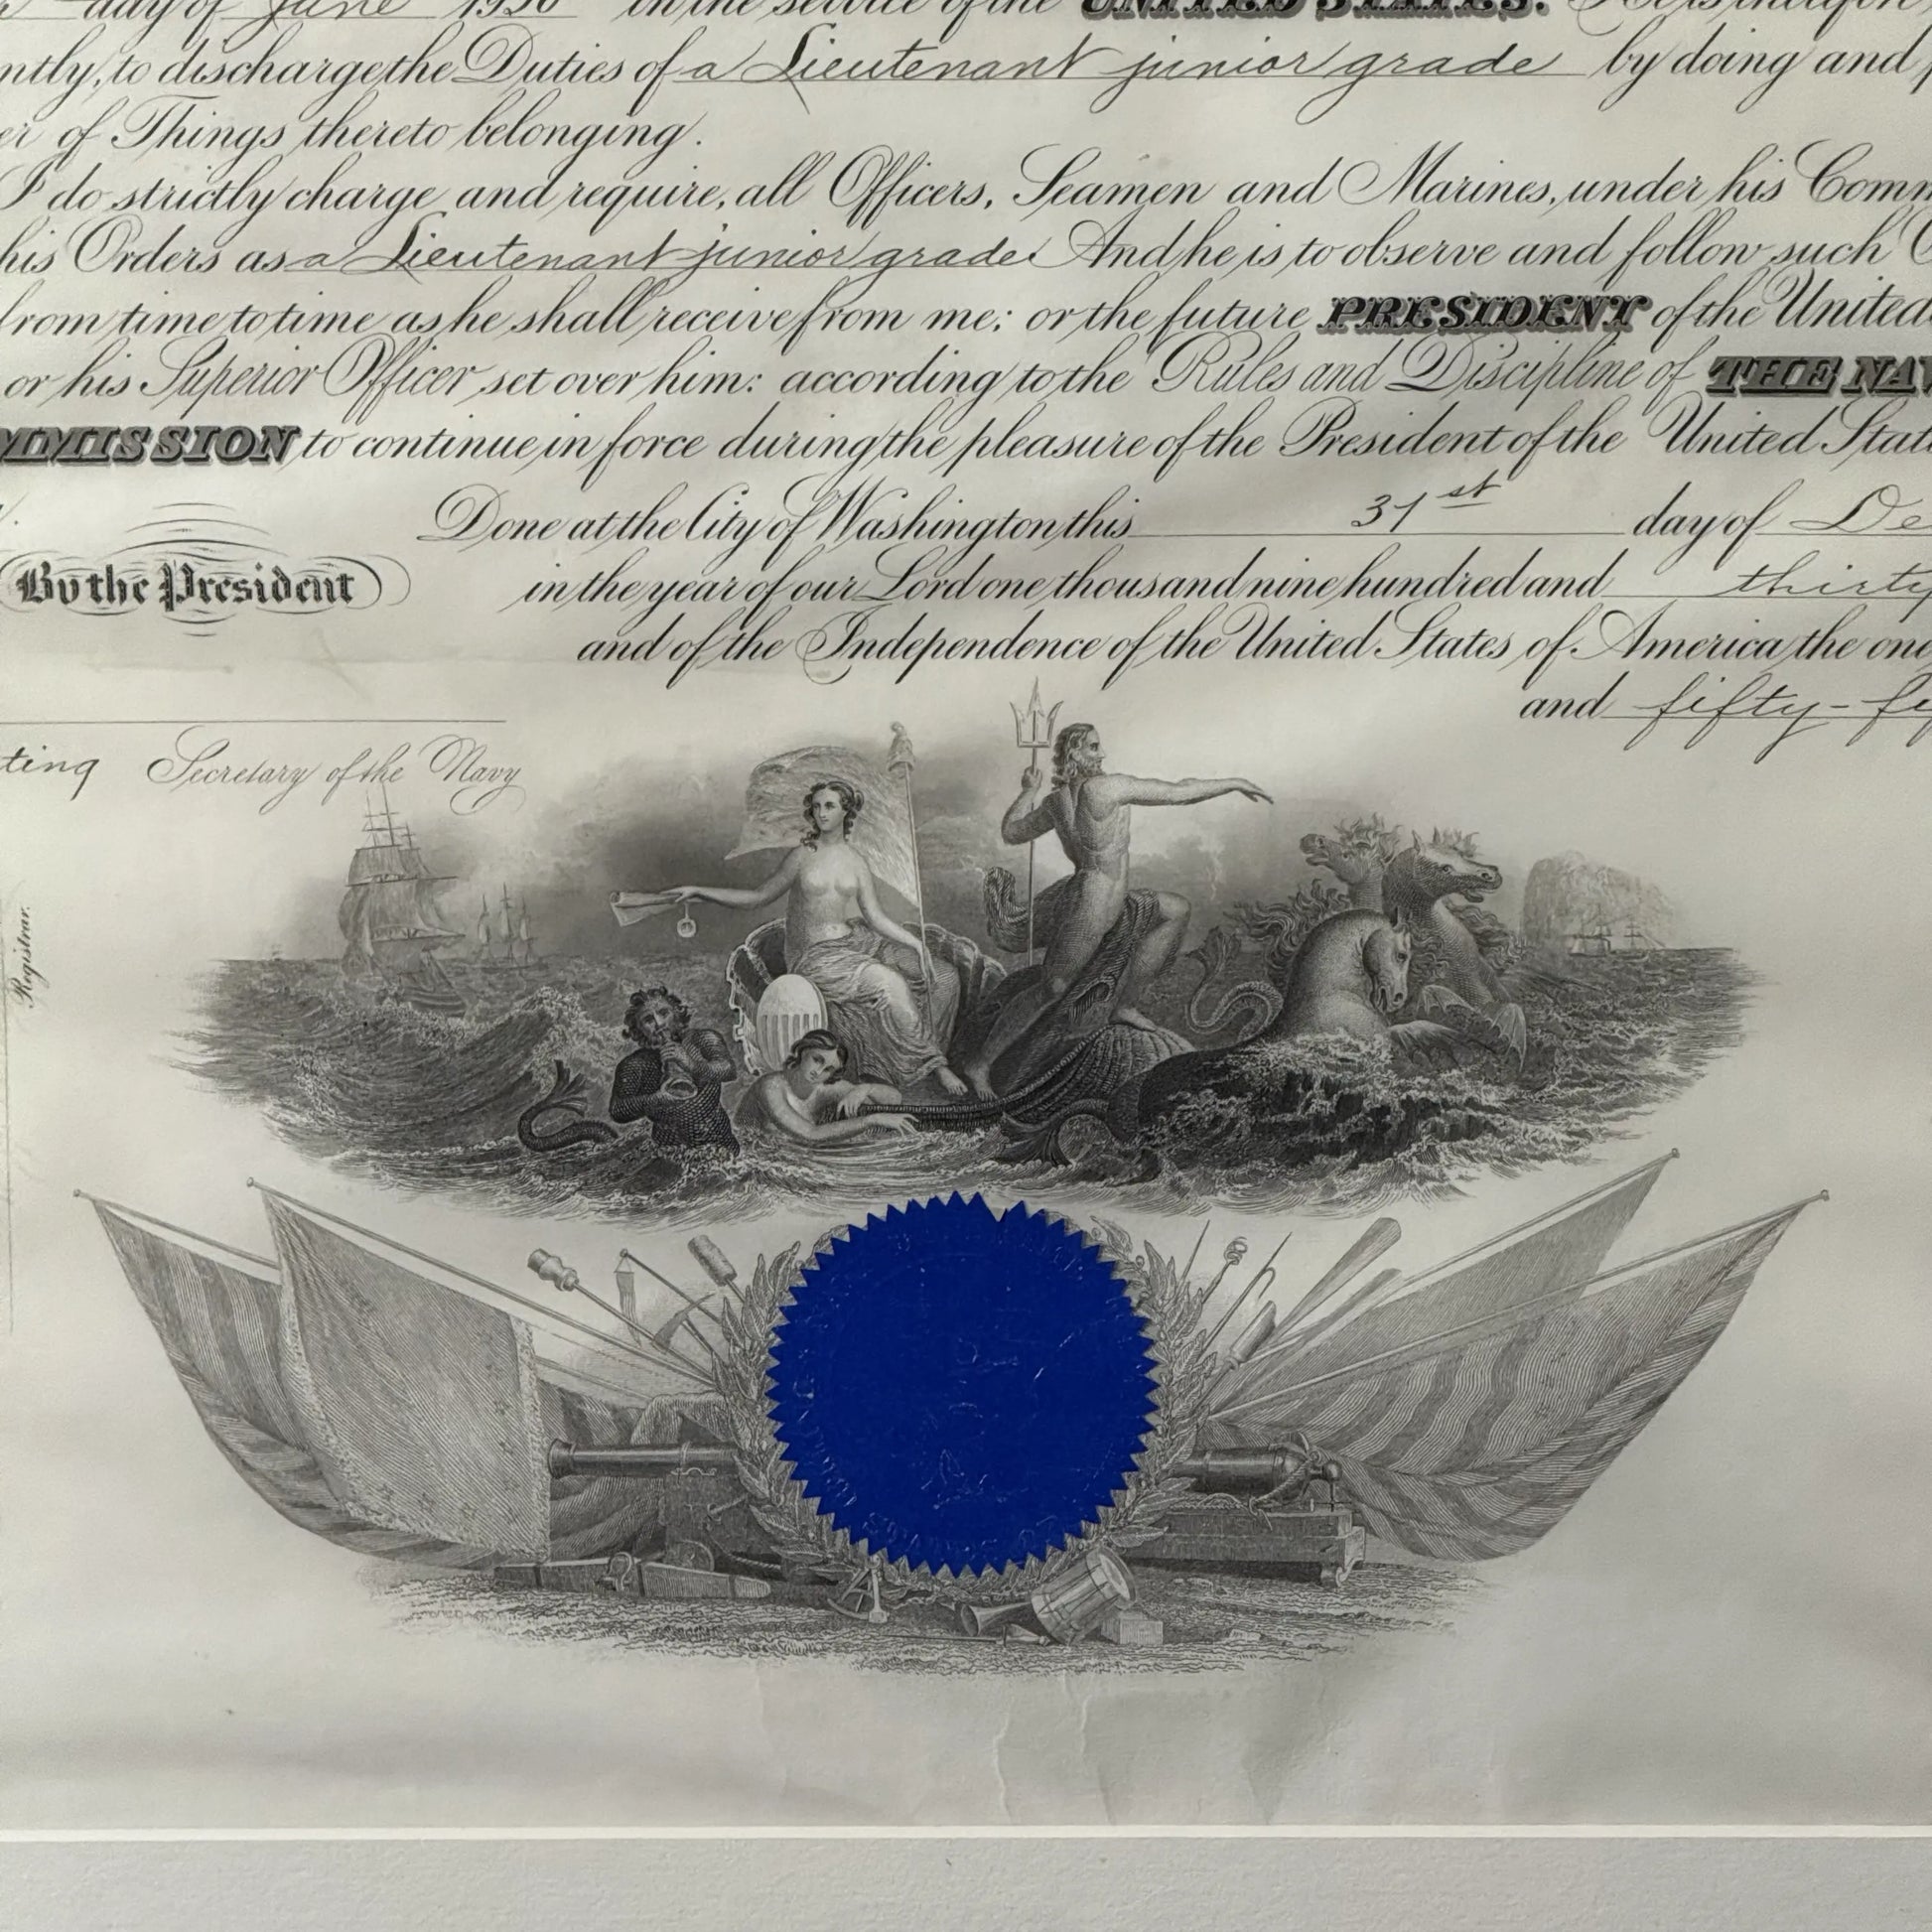 day of June 1930 in the service of the UNITED STATES.
ntly, to discharge the Duties of a Lieutenant junior grade by doing and
er of Things thereto belonging.
I do strictly charge and require, all Officers, Seamen and Marines, under his Comm
his Orders as a Lieutenant junior grade And he is to observe and follow such
from time to time as he shall receive from me; or the future PRESIDENT of the United
or his Superior Officer set over him: according to the Rules and Discipline of THE NAV
MMISSION to continue in force during the pleasure of the President of the United Stat
Done at the City of Washington this 31st day of De
By the President
in the year of our Lord one thousand nine hundred and thirty
and of the Independence of the United States of America the one
and fifty-fi
ting Secretary of the Navy
Registrar.